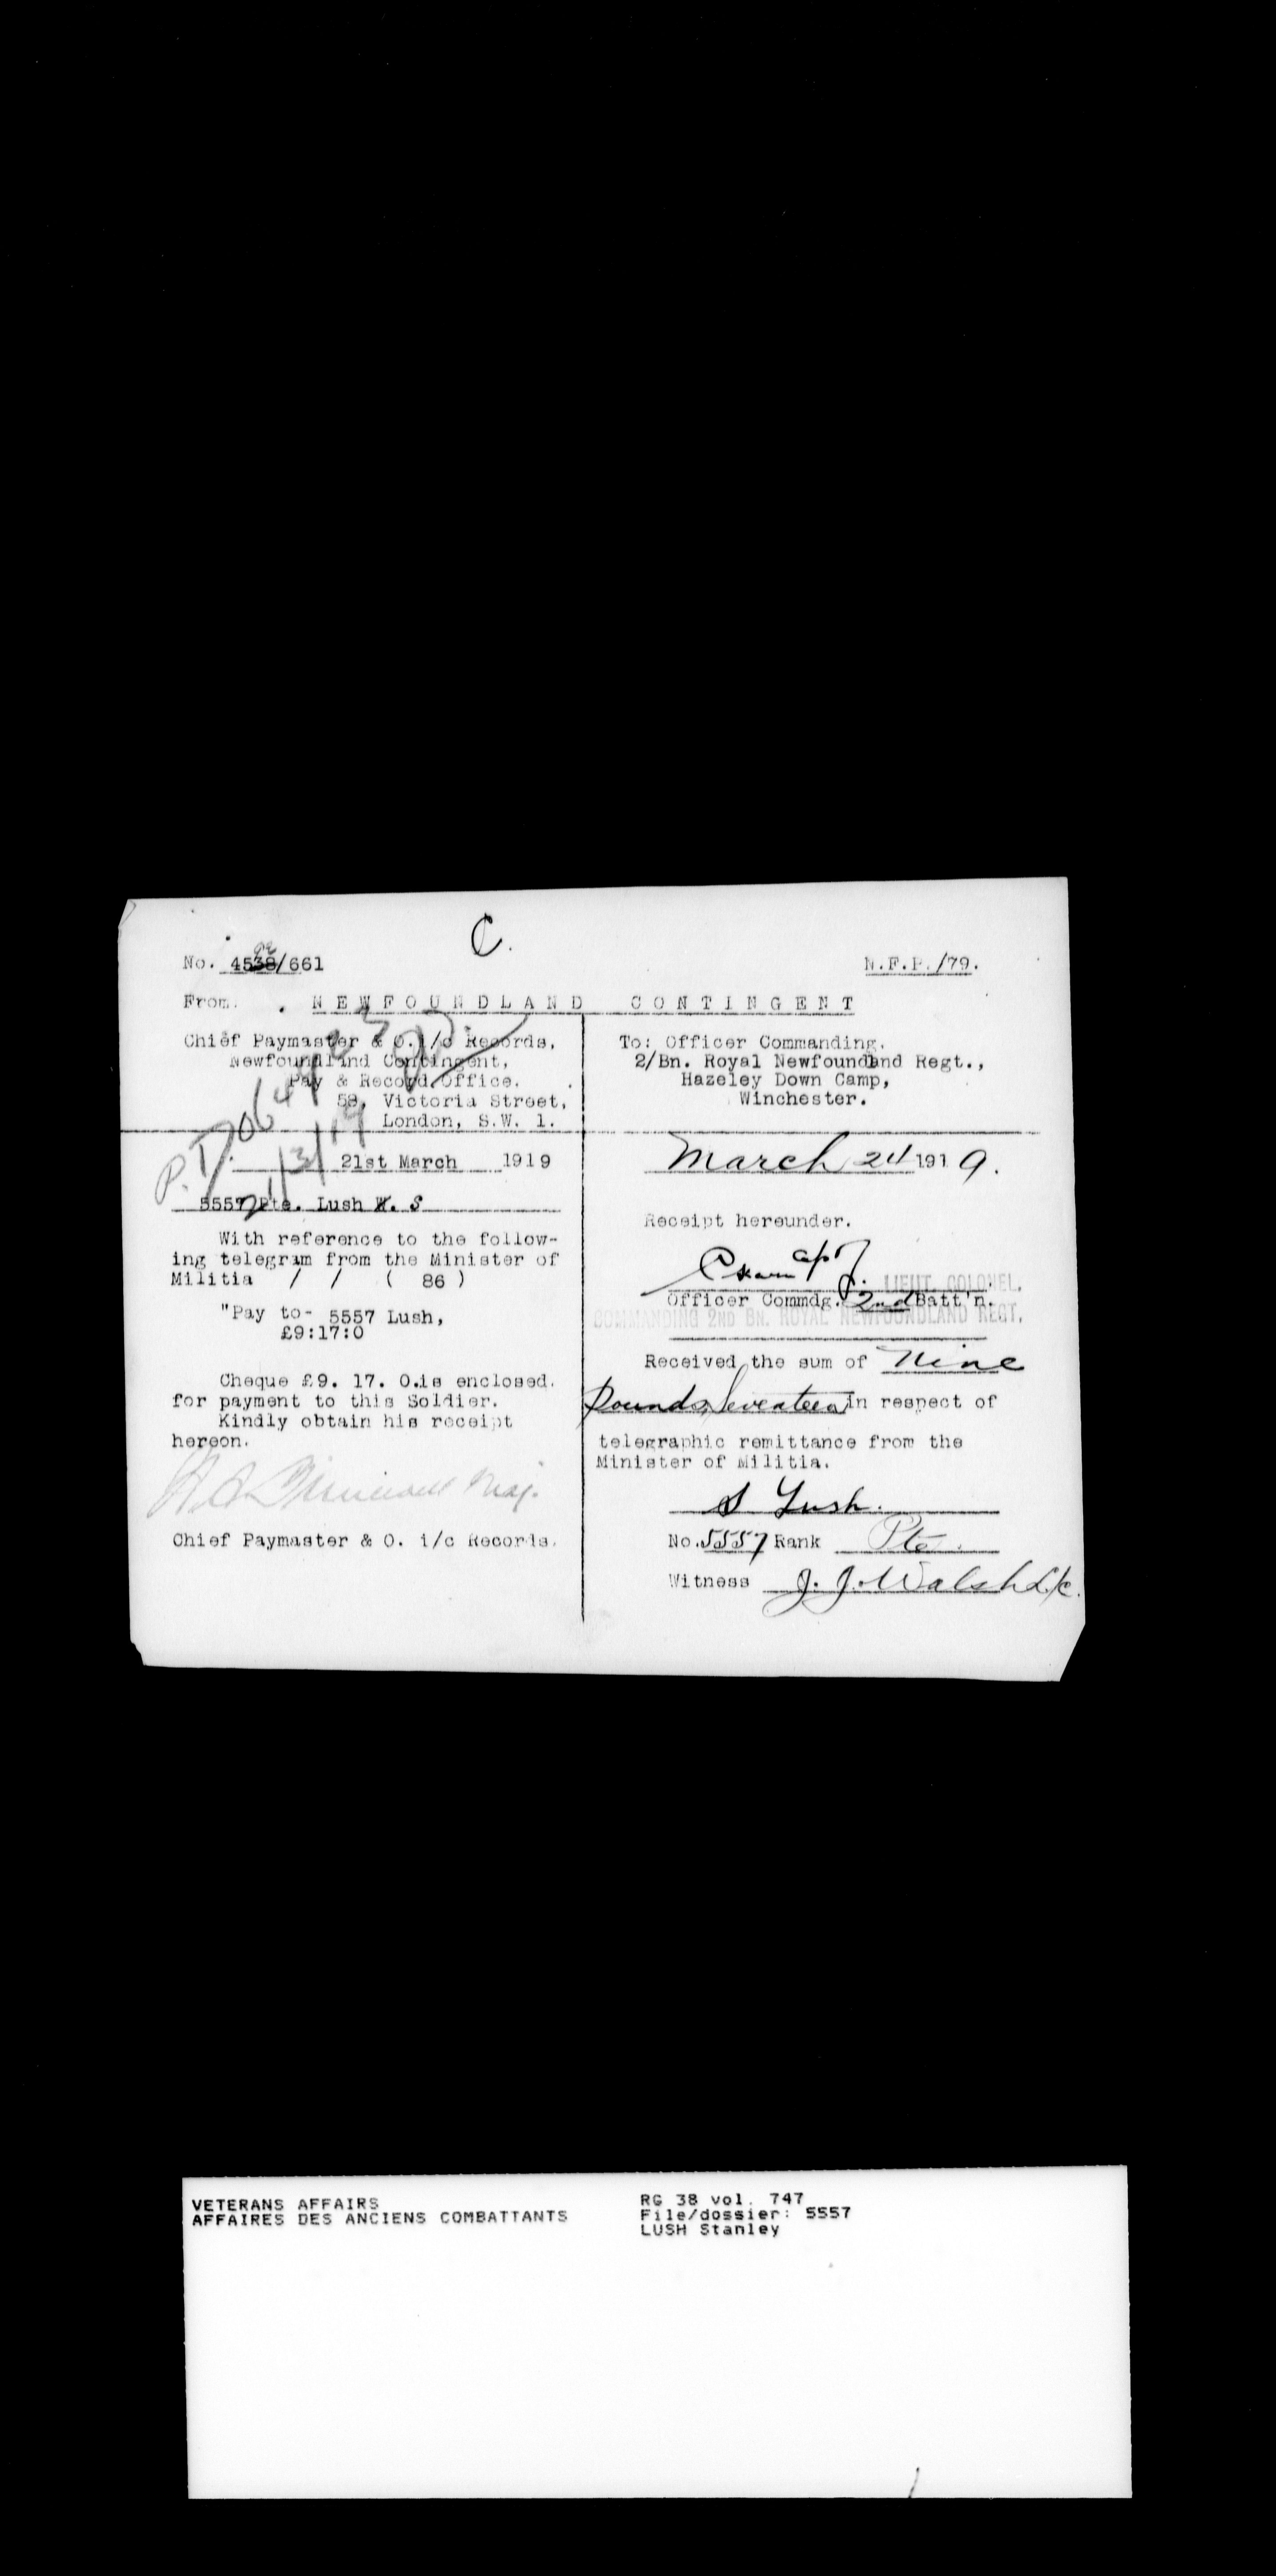 C.
No. 4538/661
N.F.P./79.
From. NEWFOUNDLAND CONTINGENT
Chief Paymaster & O. i/c Records,
Newfoundland Contingent,
Pay & Record Office.
58, Victoria Street,
London, S.W. 1.
P.D.
21/3/19
21st March 1919
5557 Pte. Lush W. S
With reference to the follow-
ing telegram from the Minister of
Militia / / ( 86 )
"Pay to- 5557 Lush,
£9:17:0
Cheque £9. 17. 0.is enclosed.
for payment to this Soldier.
Kindly obtain his receipt
hereon.
Maj.
Chief Paymaster & O. i/c Records.
To: Officer Commanding.
2/Bn. Royal Newfoundland Regt.,
Hazeley Down Camp,
Winchester.
March 24 1919.
Receipt hereunder.
LIEUT. COLONEL.
Officer Commdg. 2nd Batt'n.
COMMANDING 2ND BN. ROYAL NEWFOUNDLAND REGT.
Received the sum of Nine
Pounds, Seventeen in respect of
telegraphic remittance from the
Minister of Militia.
S Lush.
No. 5557 Rank Pte.
Witness J. J. Walsh L/c.
VETERANS AFFAIRS
AFFAIRES DES ANCIENS COMBATTANTS
RG 38 vol. 747
File/dossier: 5557
LUSH Stanley